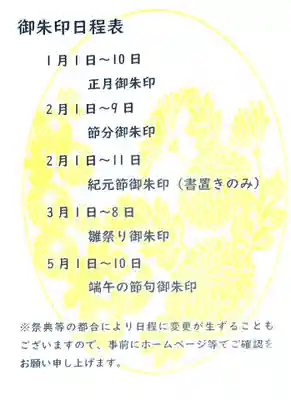 御朱印日程表
1月1日〜10日
正月御朱印
2月1日〜9日
節分御朱印
2月1日〜11日
紀元節御朱印（書置きのみ）
3月1日〜8日
雛祭り御朱印
5月1日〜10日
端午の節句御朱印
※祭典等の都合により日程に変更が生ずることも
ございますので、事前にホームページ等でご確認を
お願い申し上げます。